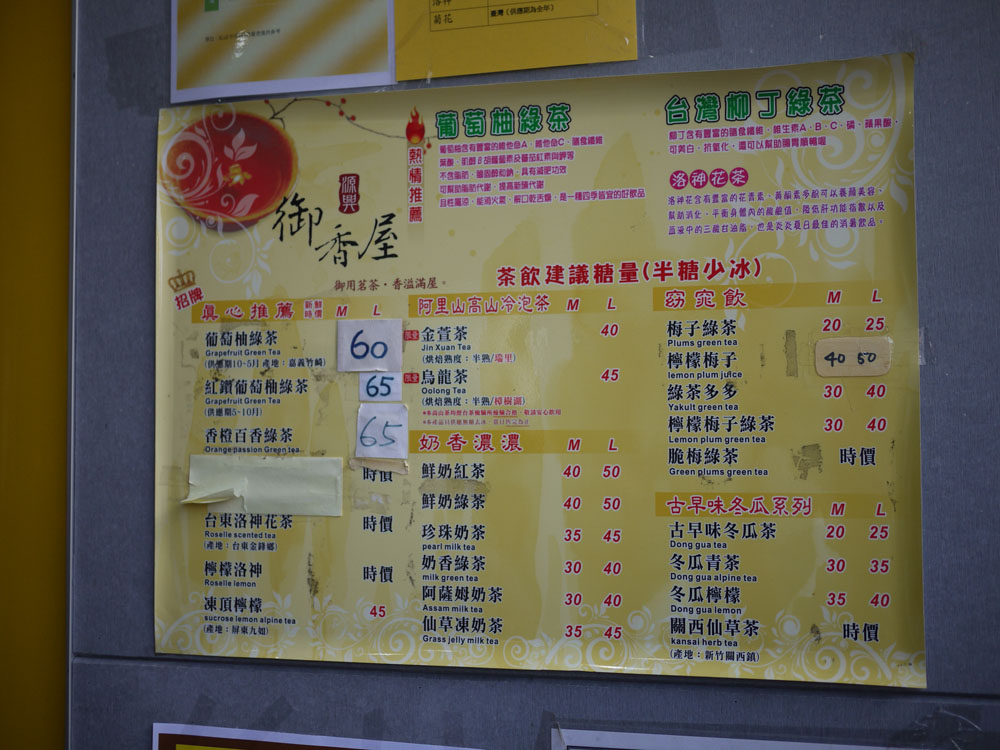 菊花
臺灣(供應期為全年)
葡萄柚綠茶
熱情推薦
葡萄柚含有豐富的維他命A、維他命C、膳食纖維
不含脂肪、膽固醇和鈉，具有減肥功效
可幫助脂肪代謝、提高新陳代謝
台灣柳丁綠茶
柳丁含有豐富的膳食纖維、維生素A、B、C、磷、蘋果酸，
洛神花茶
源興
御香屋
御用茗茶・香溢滿屋。
茶飲建議糖量(半糖少冰)
招牌
真心推薦 新鮮時價 M L
葡萄柚綠茶 60
Grapefruit Green Tea
(供應期10-5月 產地：嘉義竹崎)
紅鑽葡萄柚綠茶 65
Grapefruit Green Tea
(供應期5-10月)
香橙百香綠茶 65
Orange passion Green tea
時價
台東洛神花茶 時價
Roselle scented tea
(產地：台東金鋒鄉)
檸檬洛神 時價
Roselle lemon
凍頂檸檬 45
sucrose lemon alpine tea
(產地：屏東九如)
阿里山高山冷泡茶 M L
限量 金萱茶 40
Jin Xuan Tea
(烘焙熟度：半熟/瑞里)
限量 烏龍茶 45
Oolong Tea
(烘焙熟度：半熟/樟樹湖)
奶香濃濃 M L
鮮奶紅茶 40 50
鮮奶綠茶 40 50
珍珠奶茶 35 45
pearl milk tea
奶香綠茶 30 40
milk green tea
阿薩姆奶茶 30 40
Assam milk tea
仙草凍奶茶 35 45
Grass jelly milk tea
窈窕飲 M L
梅子綠茶 20 25
Plums green tea
檸檬梅子 40 50
lemon plum juice
綠茶多多 30 40
Yakult green tea
檸檬梅子綠茶 30 40
Lemon plum green tea
脆梅綠茶 時價
Green plums green tea
古早味冬瓜系列 M L
古早味冬瓜茶 20 25
Dong gua tea
冬瓜青茶 30 35
Dong gua alpine tea
冬瓜檸檬 35 40
Dong gua lemon
關西仙草茶 時價
kansai herb tea
(產地：新竹關西鎮)